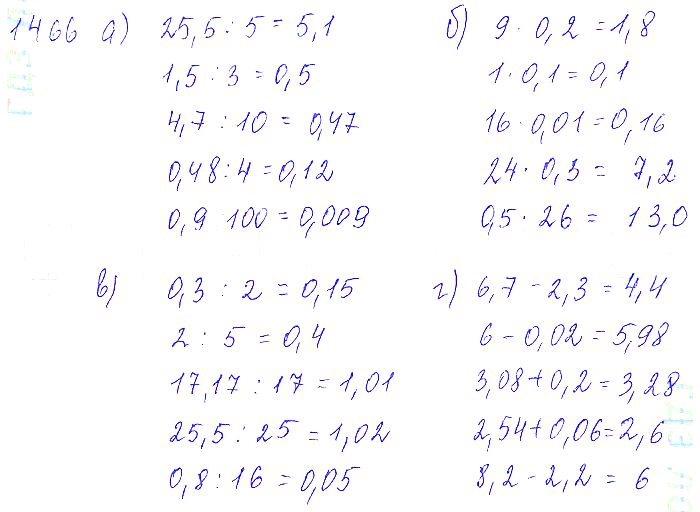 1466 а) 25,5 : 5 = 5,1
1,5 : 3 = 0,5
4,7 : 10 = 0,47
0,48 : 4 = 0,12
0,9 100 = 0,009
б) 9 · 0,2 = 1,8
1 · 0,1 = 0,1
16 · 0,01 = 0,16
24 · 0,3 = 7,2
0,5 · 26 = 13,0
в) 0,3 : 2 = 0,15
2 : 5 = 0,4
17,17 : 17 = 1,01
25,5 : 25 = 1,02
0,8 : 16 = 0,05
г) 6,7 - 2,3 = 4,4
6 - 0,02 = 5,98
3,08 + 0,2 = 3,28
2,54 + 0,06 = 2,6
8,2 - 2,2 = 6